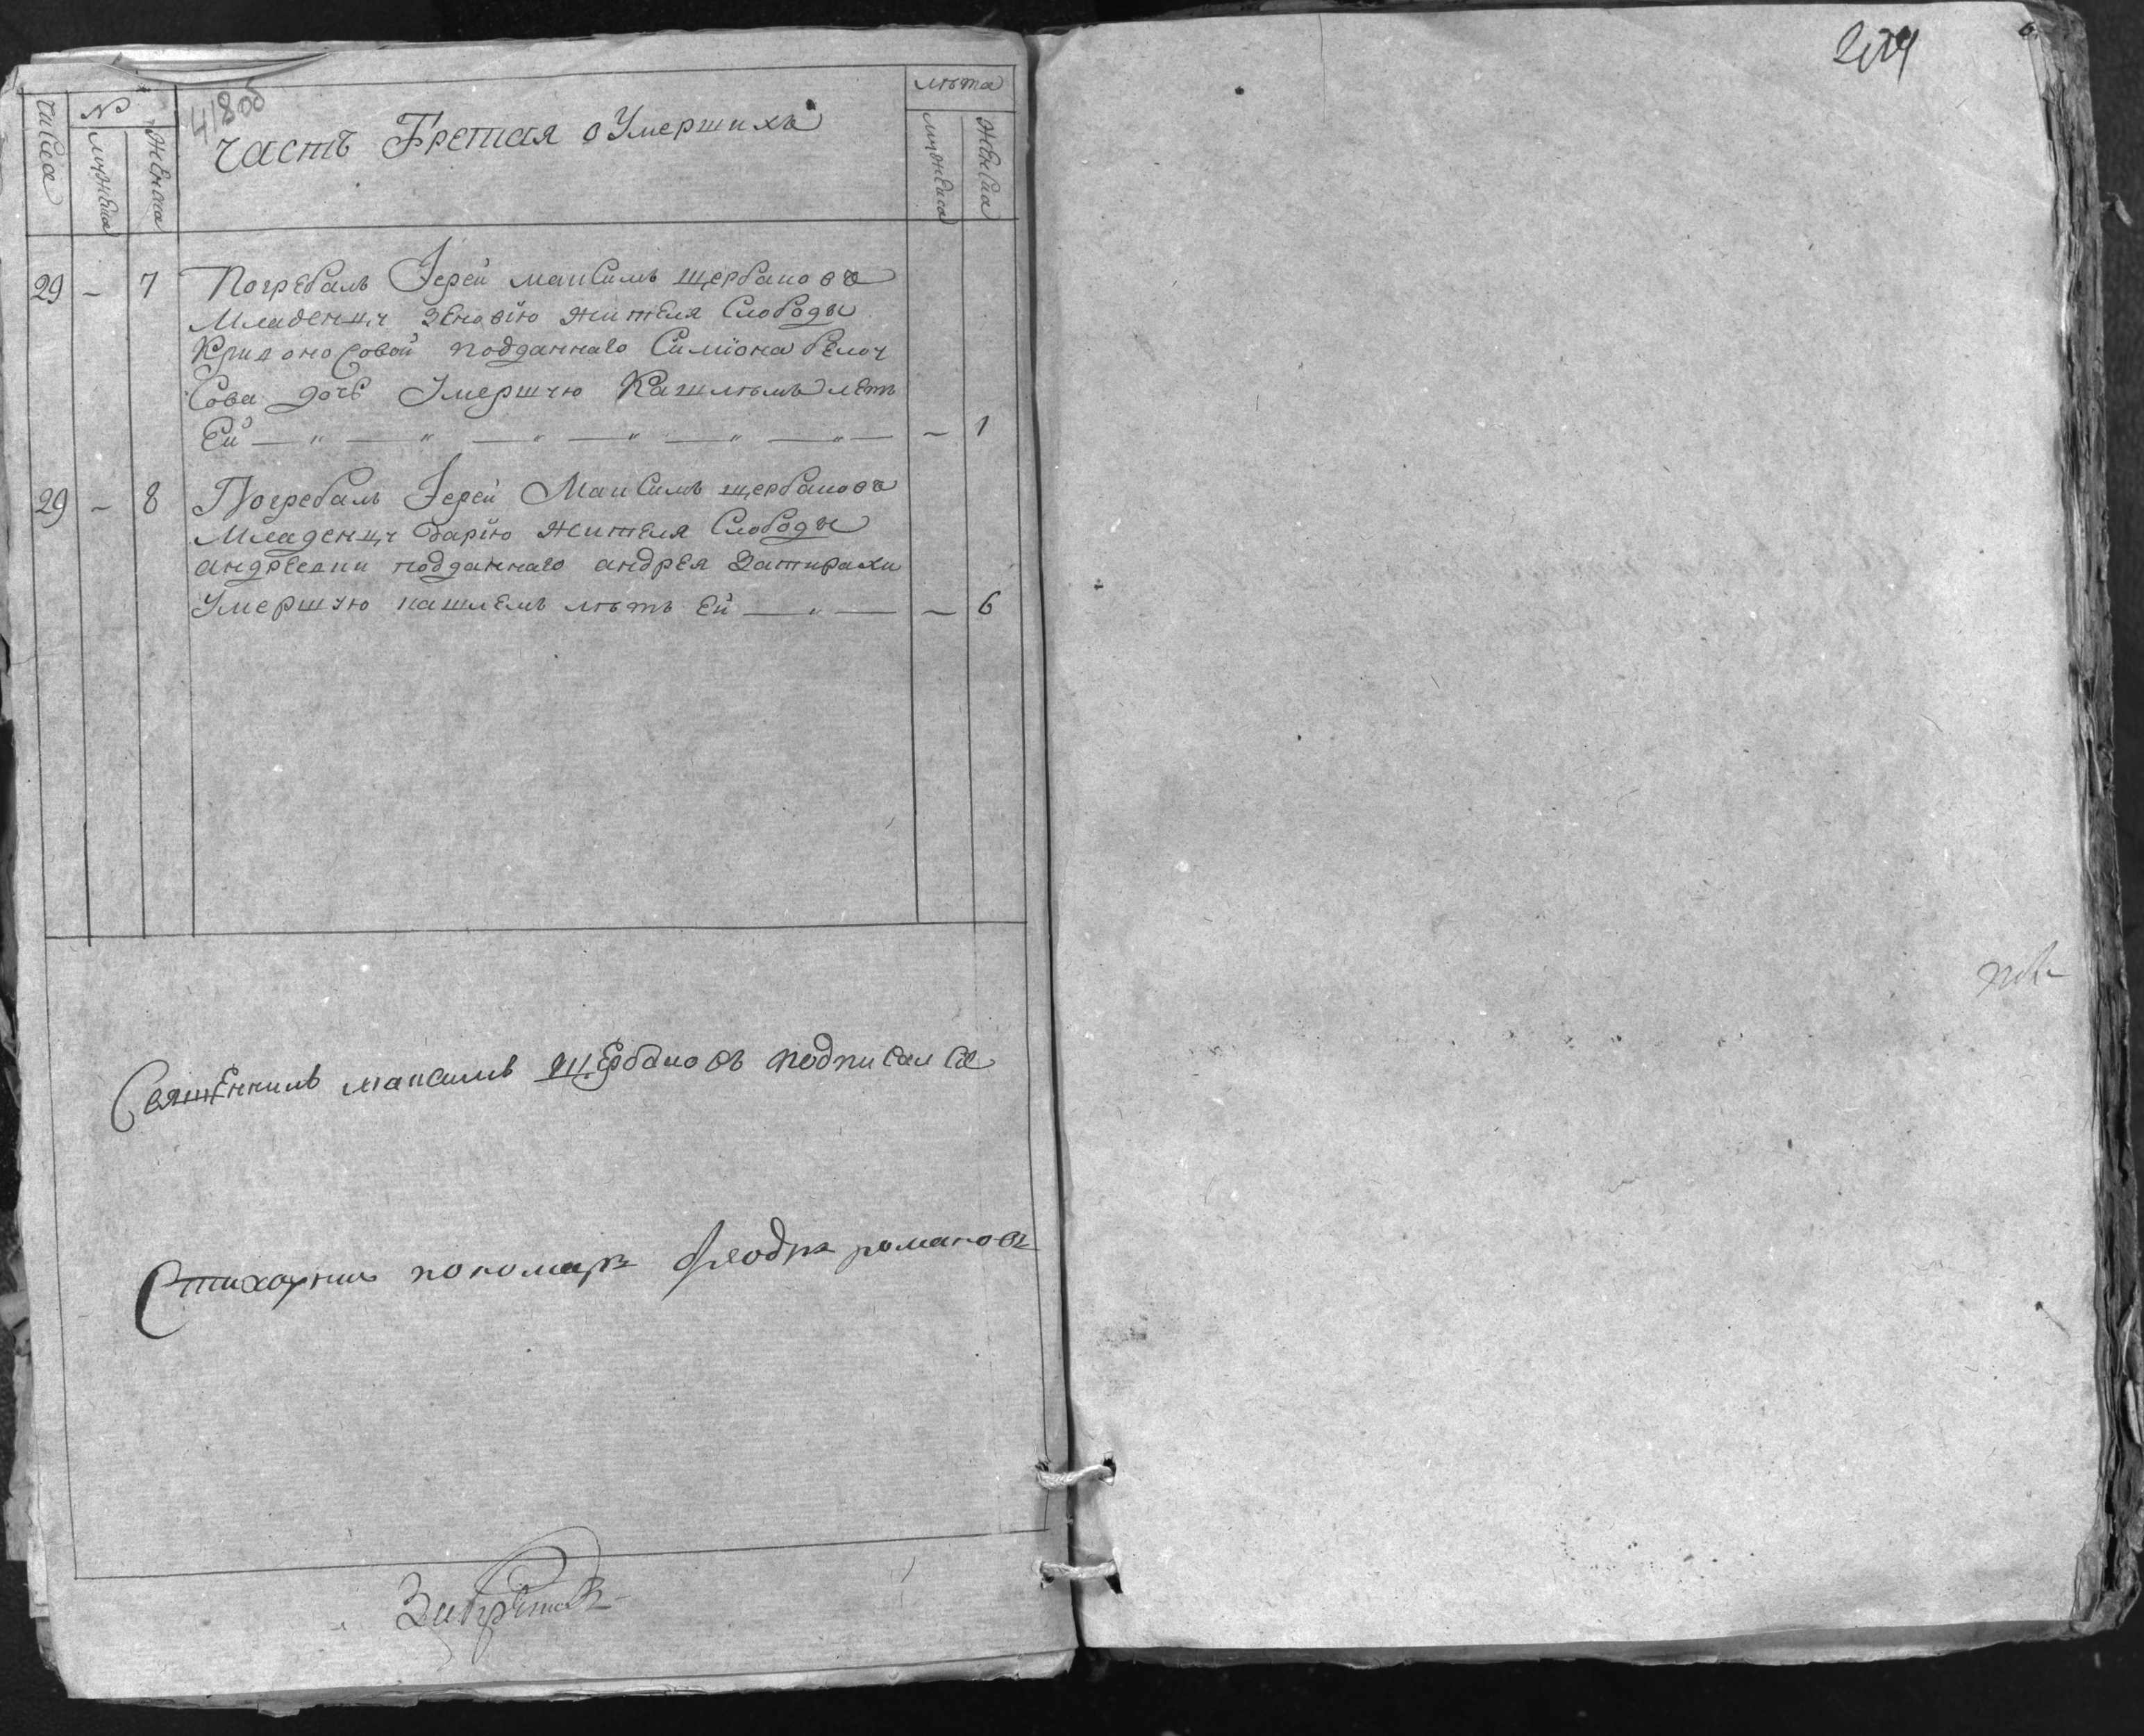 418об
числа № часть Третая о Умершихъ лѣта
мужеска женска мужеска женска
29 - 7 Погребалъ Іерей максимъ щербаковъ
Младенцу Зеновію жителя Слободы
Кривоносовой подданнаго Симіона белоу
Сова дочь Умершую Кашлѣмъ летъ
Ей — „ — „ — „ — „ — „ — „ — - 1
29 - 8 Погребалъ Іерей Максимъ щербаковъ
Младенцу дарію жителя Слободы
андреевки подданнаго андрея
Умершую кашлемъ лѣтъ Ей — „ — - 6
Священникъ максимъ щербаковъ подписался
Стихарный пономарь романовъ